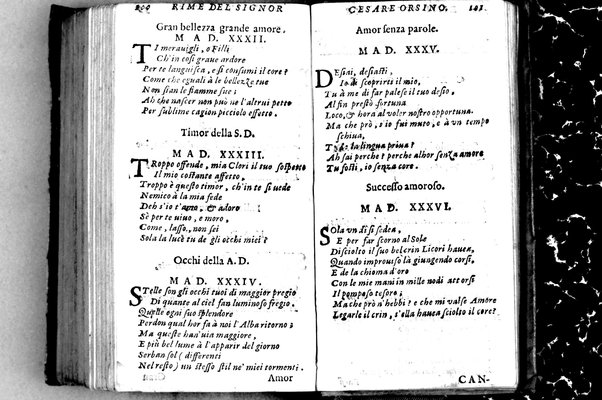 200 RIME DEL SIGNOR
Gran bellezza grande amore.
M A D. XXXII.
TI merauigli, o Filli
Ch'in così graue ardore
Per te languisca, e sì consumi il core?
Come che eguali à le bellezze tue
Non sian le fiamme sue;
Ah che nascer non può ne l'altrui petto
Per sublime cagion picciolo effetto.
Timor della S. D.
M A D. XXXIII.
TRoppo offende, mia Clori il tuo sospetto
Il mio costante affetto,
Troppo è questo timor, ch'in te si vede
Nemico à la mia fede
Deh s'io t'amo, & adoro
Sè per te uiuo, e moro,
Come, lasso, non sei
Sola la luce tu de gli occhi miei?
Occhi della A. D.
M A D. XXXIV.
STelle son gli occhi tuoi di maggior pregio
Di quante al ciel fan luminoso fregio,
Quelle ogni suo splendore
Perdon qual hor fà à noi l'Alba ritorno;
Ma queste han'uia maggiore,
E più bel lume à l'apparir del giorno
Serban sol ( differenti
Nel resto) un stesso stil ne' miei tormenti.
Amor
CESARE ORSINO. 201
Amor senza parole.
M A D. XXXV.
DEsiai, desiasti,
Io di scoprirti il mio,
Tu à me di far palese il tuo desio,
Al fin prestò fortuna
Loco, & hora al voler nostro opportuna.
Ma che prò, s'io fui muto, e à vn tempo
schiua,
Tu de la lingua priua?
Ah sai perche? perche alhor senza amore
Tu fosti, io senza core.
Successo amoroso.
M A D. XXXVI.
SOla vn dì si sedea,
E per far scorno al Sole
Disciolto il suo bel crin Licori hauea,
Quando improuiso là giungendo corsi,
E de la chioma d'oro
Con le mie mani in mille nodi attorsi
Il pomposo tesoro;
Ma che prò n'hebbi? e che mi valse Amore
Legarle il crin, s'ella hauea sciolto il core?
CAN-